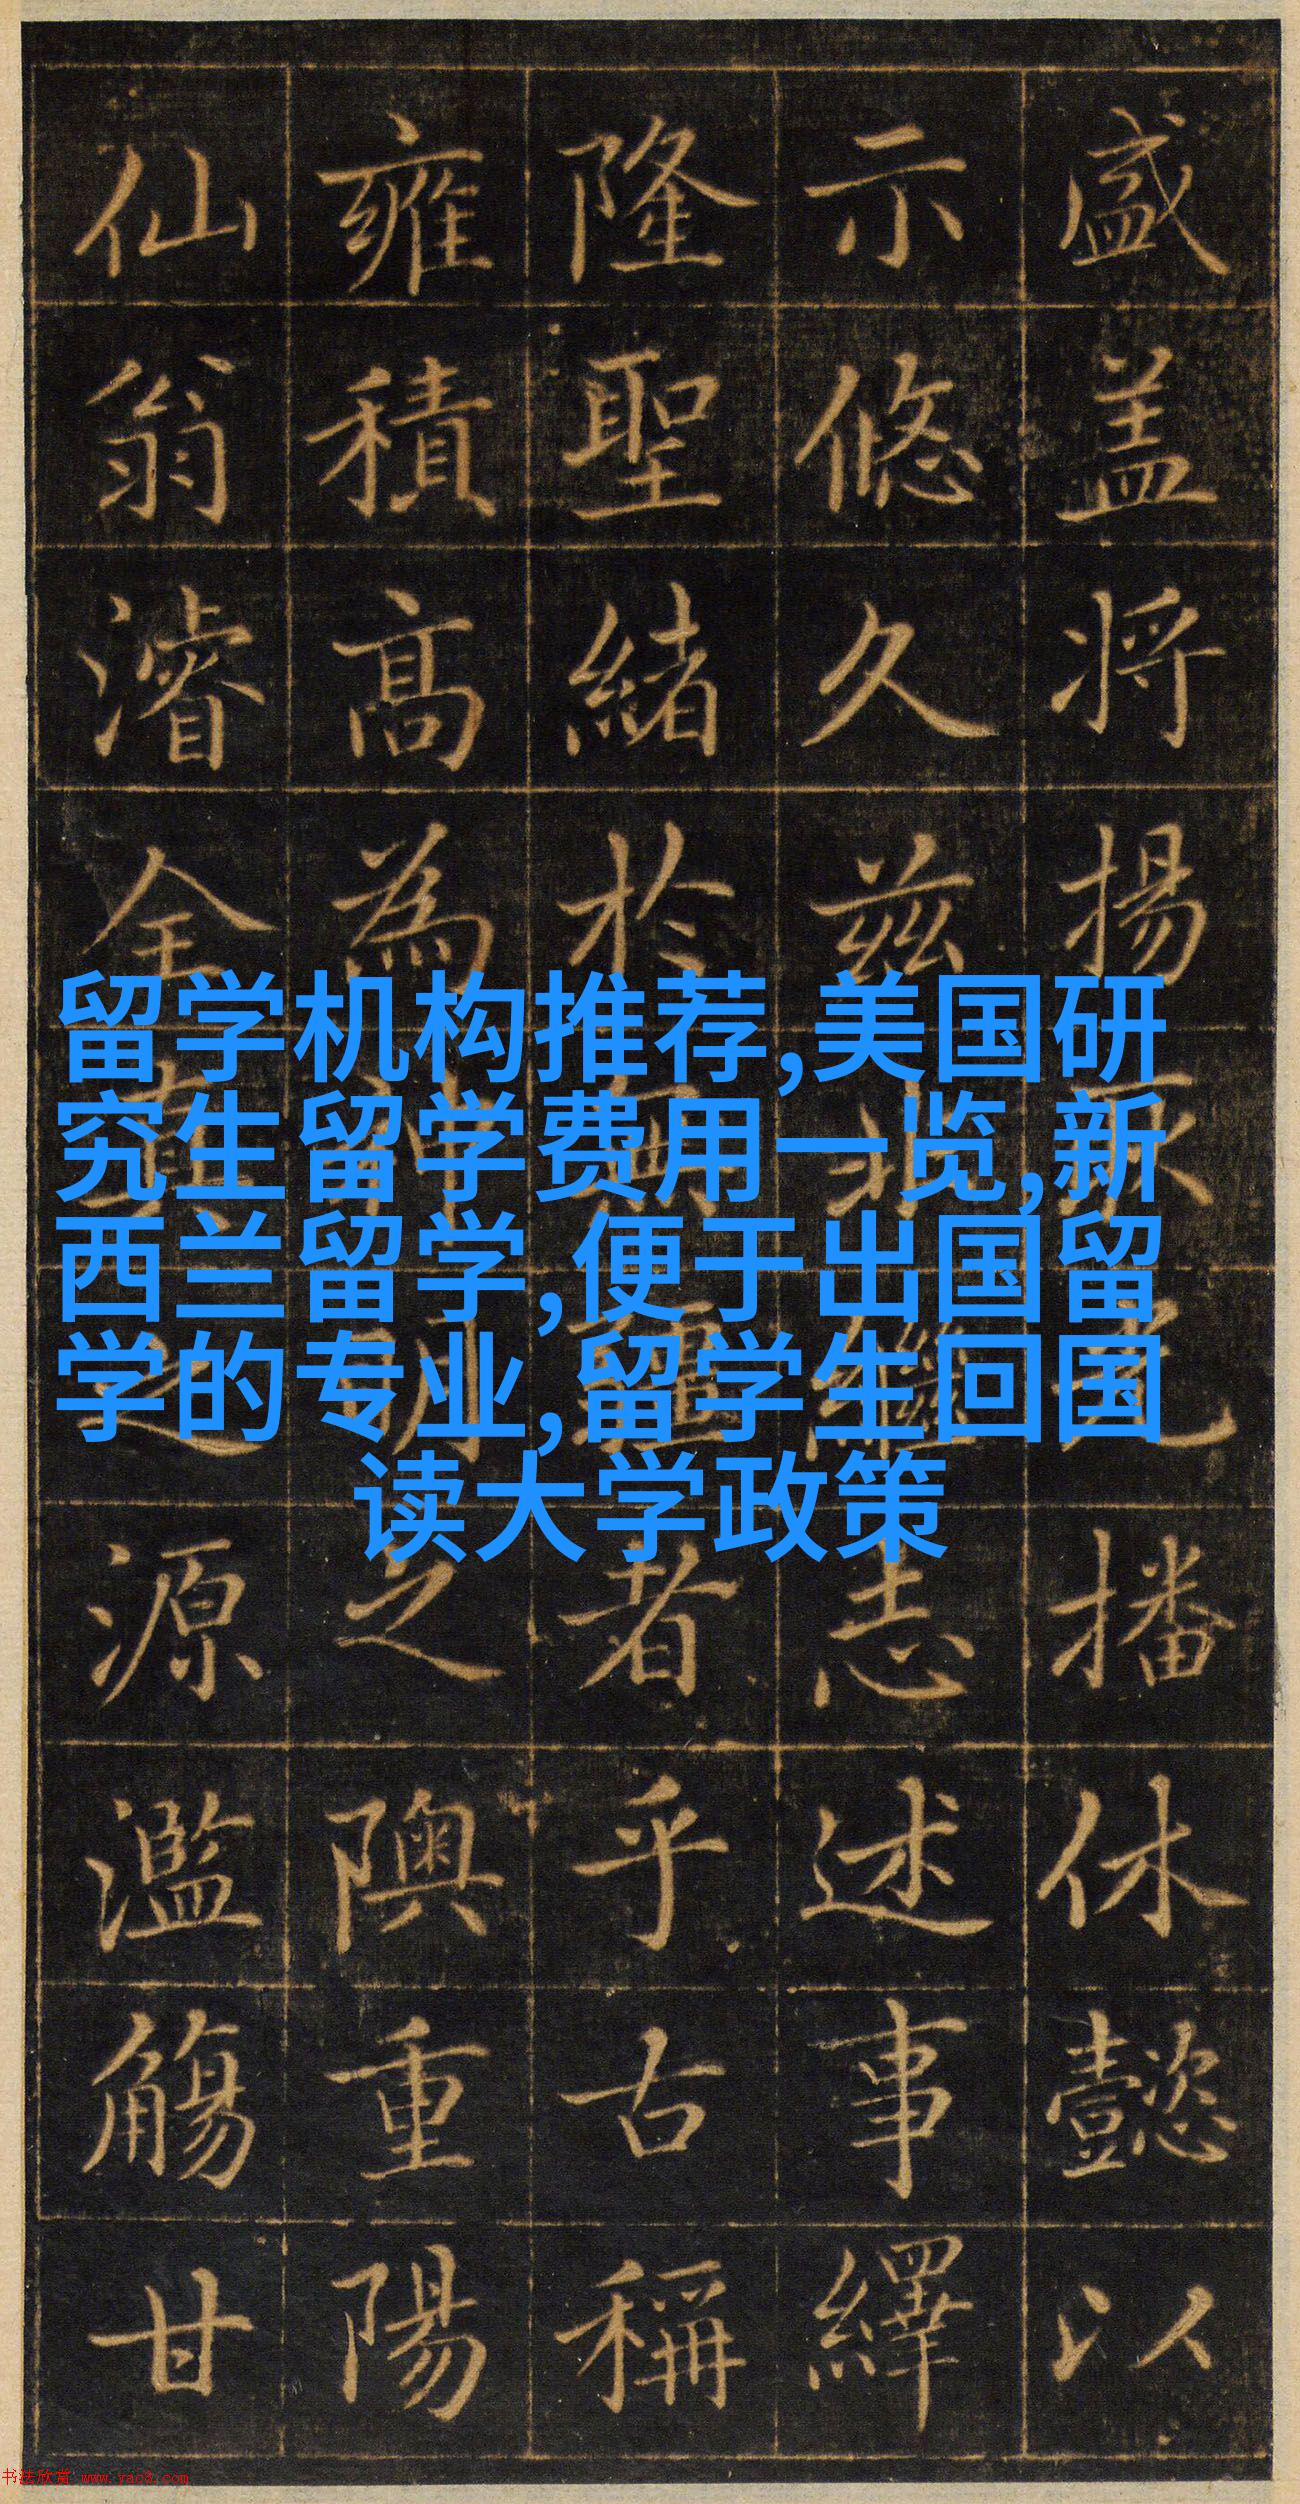 盛盖将揚厥光播休懿以
示悠久兹繼志述事繹
隆聖緒於無疆者乎古稱
雍積高為神明之隩重陽
仙翁濬全真之源濫觴甘
留学机构推荐,美国研
究生留学费用一览,新
西兰留学,便于出国留
学的专业,留学生回国
读大学政策
书法欣赏 www.yac8.com